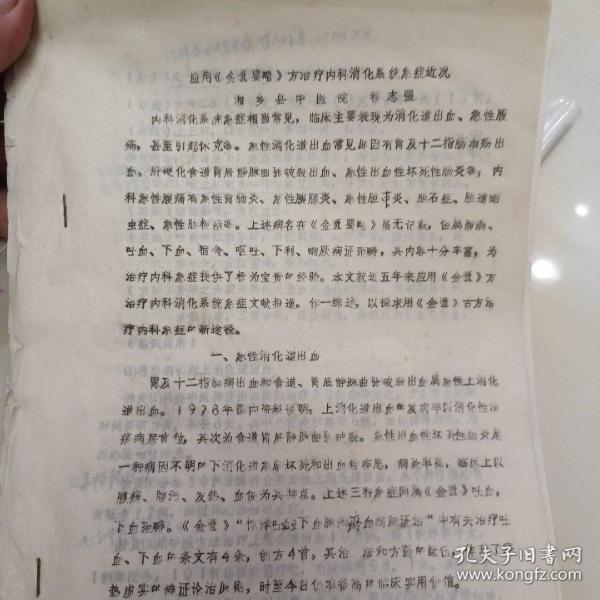 应用《金匮要略》方治疗内科消化系统急症近况
湘乡县中医院 志强
内科消化系统急症相当常见，临床主要表现为消化道出血、急性腹
痛，甚至引起休克等。急性消化道出血常见原因有胃及十二指肠溃疡出
血、肝硬化食道胃底静脉曲张破裂出血、急性出血性坏死性肠炎等；内
科急性腹痛有急性胃肠炎、急性胰腺炎、急性胆囊炎、胆石症、胆道蛔
虫症、急性肠梗阻等。上述病名在《金匮要略》虽无记载，但属腹痛、
吐血、下血、宿食、呕吐、下利、蛔厥病证范畴，其内容十分丰富，为
治疗内科急症提供了极为宝贵的经验。本文就近五年来应用《金匮》方
治疗内科消化系统急症文献报道。作一综述，以探求用《金匮》古方治
疗内科急症的新途径。
一、急性消化道出血
胃及十二指肠病出血和食道、胃底静脉曲张破裂出血属急性上消化
道出血。1978年国内资料说明：上消化道出血的发病率以消化性溃
疡病居首位，其次为食道胃底静脉曲张破裂。急性出血性坏死性肠炎是
一种病因不明的下消化道急性坏死和出血性疾患，病死率高，临床上以
腹痛、腹泻、发热、血便为其特点。上述三种急症同属《金匮》吐血，
下血范畴。《金匮》“惊悸吐衄下血胸满瘀血病脉证治”中有关治疗吐
血、下血的条文有4条，创方4首，其治 和方药的配伍
热虚实的辨证论治原则，时至今日仍有很高的临床实用价值。
孔夫子旧书网
www.kongfz.com